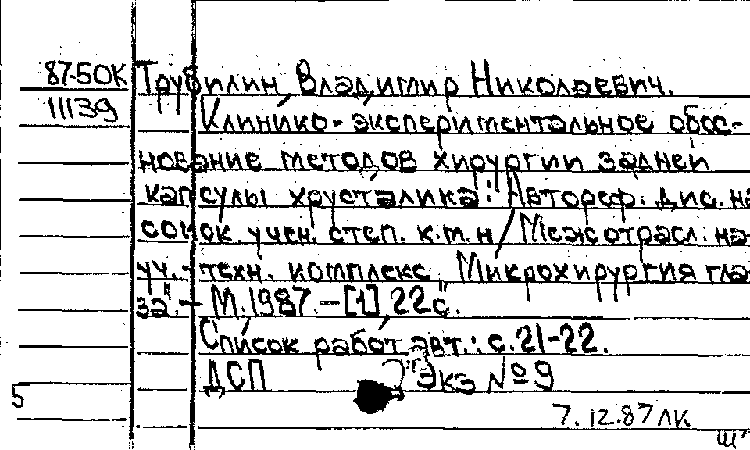 87-50К Трубилин, Владимир Николаевич.
11139 Клинико-экспериментальное обос-
нование методов хирургии задней
капсулы хрусталика: Автореф. дис. на
соиск. учен. степ. к.м.н / Межотрасл. на-
уч.-техн. комплекс "Микрохирургия гла-
за". - М. 1987. - [1], 22 с.
Список работ авт.: с. 21-22.
ДСП Экз №9
5
7.12.87 ЛК